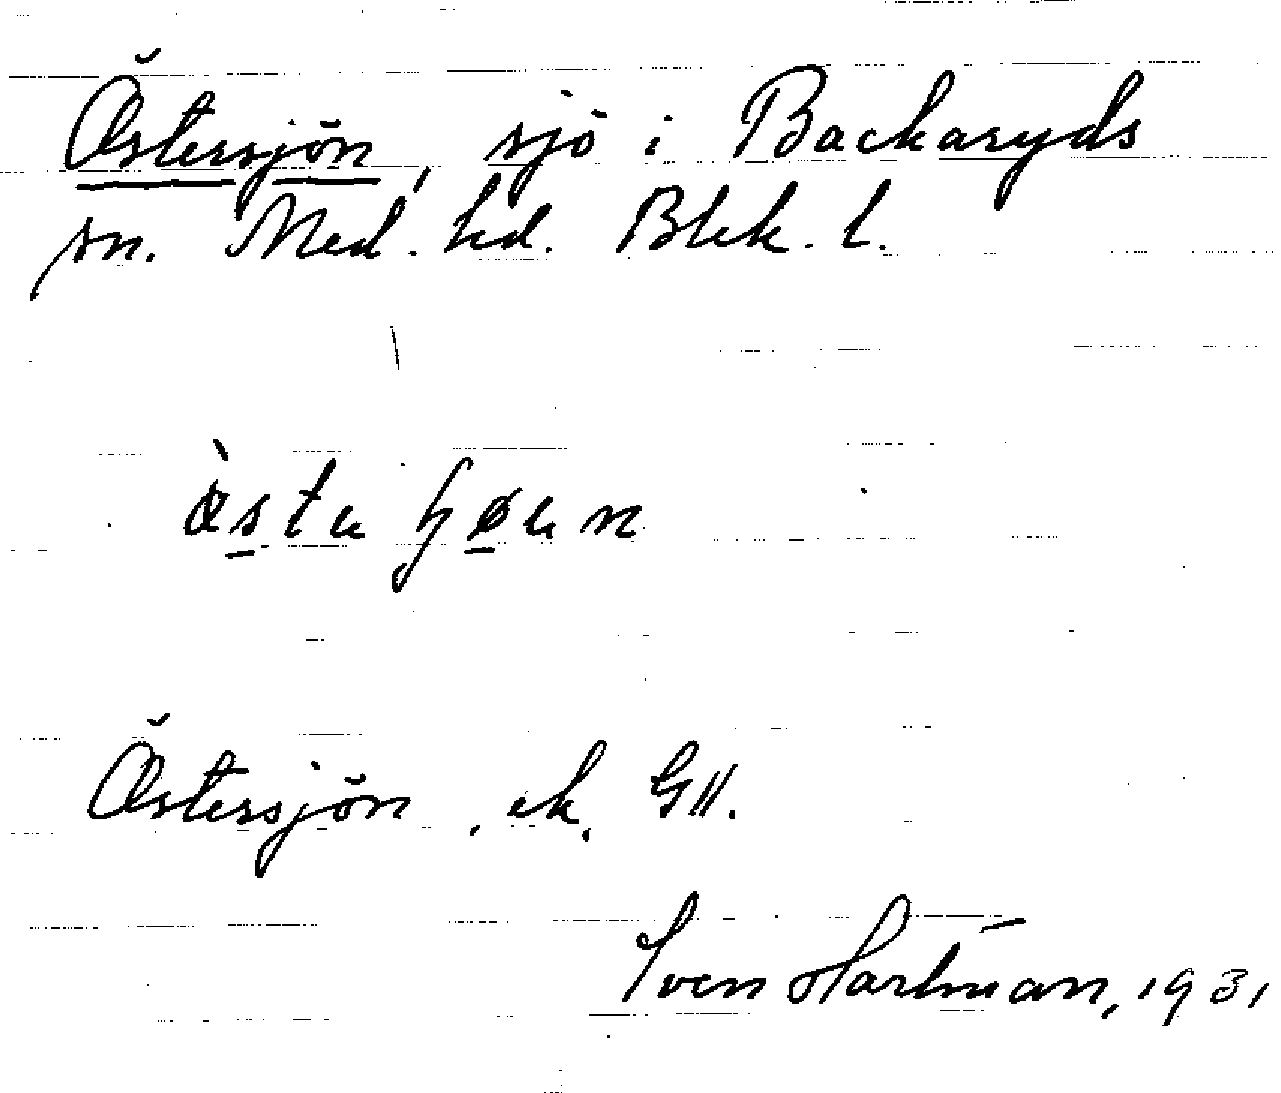 Östersjön, sjö i Backaryds
sn. Med. hd. Blek. l.
Östersjön, ek. G11.
Sven Hartman, 1931